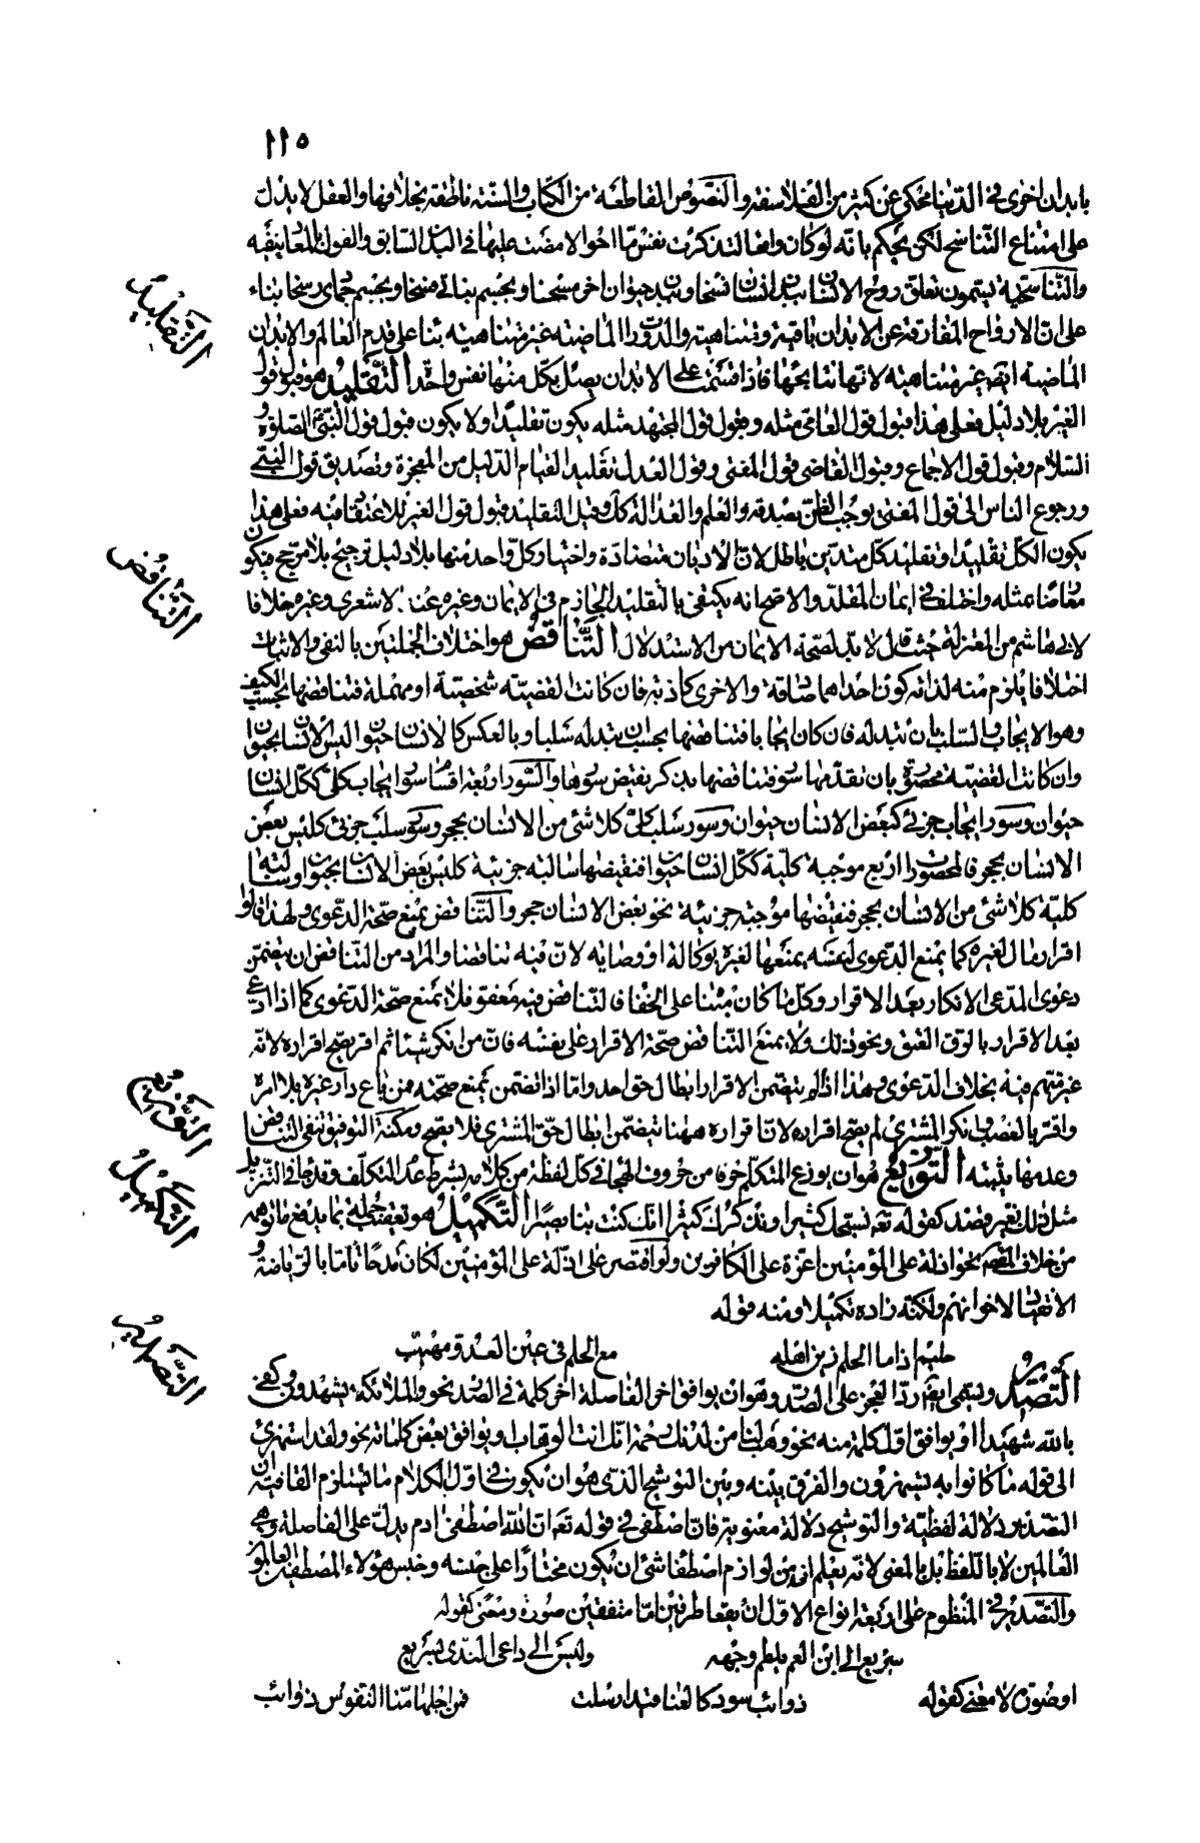 ١١٥
بابدان اخرى في الدنيا محكي عن كثير من الفلاسفة والنصوص القاطعة من الكتاب والسنة ناطقة بخلافها والعقل لا يدل
على امتناع التناسخ لكن يحكم بانه لو كان واقعا لتذكرت نفس ما احوالا مضت عليها في البدن السابق والقول بالمعاد ينفيه
والتناسخية يسمون تعلق روح الانسان ببدن انسان نسخا وببدن حيوان اخر مسخا وبجسم نباتي فسخا وبجسم جمادي رسخا بناء
على ان الارواح المفارقة عن الابدان باقية ومتناهية والدورات الماضية غير متناهية بناء على قدم العالم والابدان
الماضية ايضا غير متناهية لانها نتائجها فاذا قسمت على الابدان يصل بكل منها نفس واحد التقليد هو قبول قول
الغير بلا دليل فعلى هذا قبول قول العامي مثله وقبول قول المجتهد مثله يكون تقليدا ولا يكون قبول قول النبي عليه الصلوة و
السلام وقبول قول الاجماع وقبول القاضي قول المفتي وقول العدل تقليدا لقيام الدليل من المعجزة وتصديق قول النبي
ورجوع الناس الى قول المفتي يوجب الظن بصدقه والعلم والعدالة كل وقيل التقليد قبول قول الغير للاعتقاد فيه فعلى هذا
يكون الكل تقليدا وتقليد كل متدين باطل لان الاديان متضادة واختيار كل واحد منها بلا دليل ترجيح بلا مرجح فيكون
معارضا بمثله واختلف في ايمان المقلد والاصح انه يكتفى بالتقليد الجازم في الايمان وغيره عند الاشعري وغيره خلافا
لابي هاشم من المعتزلة حيث قال لا بد لصحة الايمان من الاستدلال التناقض هو اختلاف الجملتين بالنفي والاثبات
اختلافا يلزم منه لذاته كون احداهما صادقة والاخرى كاذبة فان كانت القضية شخصية او مهملة فتناقضها بحسب الكيف
وهو الايجاب والسلب بان تبدله فان كان ايجابا فتناقضها بحسب ان تبدله سلبا وبالعكس كالانسان حيوان ليس الانسان بحيوان
وان كانت القضية محصورة بان تقدمها سور فتناقضها بذكر نقيض سورها والسور اربعة اقسام سور ايجاب كلي ككل انسان
حيوان وسور ايجاب جزئي كبعض الانسان حيوان وسور سلب كلي كلا شئ من الانسان بحجر وسور سلب جزئي كليس بعض
الانسان بحجر فالمحصورات اربع موجبة كلية ككل انسان حيوان فنقيضها سالبة جزئية كليس بعض الانسان بحيوان وسالبة
كلية كلا شئ من الانسان بحجر فنقيضها موجبة جزئية نحو بعض الانسان حجر والتناقض يمنع صحة الدعوى ولهذا قالوا
اقرار بمال لغيره كما يمنع الدعوى لنفسه يمنعها لغيره بوكالة او وصاية لان فيه تناقضا والمراد من التناقض ان يتضمن
دعوى المدعي الانكار بعد الاقرار وكل ما كان مبناه على الخفاء فالتناقض فيه معفو فلا يمنع صحة الدعوى كما اذا ادعى
بعد الاقرار بالرق العتق ونحو ذلك ولا يمنع التناقض صحة الاقرار على نفسه فان من انكر شيئا ثم اقر يصح اقراره لانه
غير متهم فيه بخلاف الدعوى وهذا اذا لم يتضمن الاقرار ابطال حق احد واما اذا تضمن يمنع صحته فمن باع دار غيره بلا امره
واقر بالغصب وانكر المشتري لم يصح اقراره لان اقراره ههنا يتضمن ابطال حق المشتري فلا يصح ومكنة التوفيق تنفي التناقض
وعدمها يثبته التوزيع هو ان يوزع المتكلم حرفا من حروف الهجاء في كل لفظة من كلامه بشرط عدم التكلف وقد جاء في التنزيل
مثل ذلك بغير قصد كقوله تعه نسبحك كثيرا ونذكرك كثيرا انك كنت بنا بصيرا التكميل هو تعقيب جملة بما يدفع ما توهمه
من خلاف المقصود نحو اذلة على المؤمنين اعزة على الكافرين ولو اقتصر على اذلة على المؤمنين لكان مدحا تاما بالرياضة و
الانقياد لاخوانهم ولكنه زاده تكميلا ومنه قوله
حليم اذا ما الحلم زين اهله
مع الحلم في عين العدو مهيب
التصدير ويسمى ايضا رد العجز على الصدر وهو ان يوافق اخر الفاصلة اخر كلمة في الصدر نحو والملائكة يشهدون وكفى
بالله شهيدا او يوافق اول كلمة منه نحو وهب لنا من لدنك رحمة انك انت الوهاب او يوافق بعض كلماته نحو ولقد استهزئ
الى قوله ما كانوا به يستهزؤن والفرق بينه وبين التوشيح الذي هو ان يكون في اول الكلام ما يستلزم القافية ان
التصدير دلالة لفظية والتوشيح دلالة معنوية فان اصطفى في قوله تعه ان الله اصطفى ادم يدل على الفاصلة وهي
العالمين لا باللفظ بل بالمعنى لانه يعلم ان من لوازم اصطفاء شئ ان يكون مختارا على جنسه وجنس هؤلاء المصطفين العالمون
والتصدير في المنظوم على اربعة انواع الاول ان يقعا طرفين اما متفقين صورة ومعنى كقوله
سريع الى ابن العم يلطم وجهه
وليس الى داعي الندى بسريع
او صورة لا معنى كقوله
ذوائب سود كالعناقيد ارسلت
فمن اجلها منا النفوس ذوائب
التقليد
التناقض
التوزيع
التكميل
التصدير